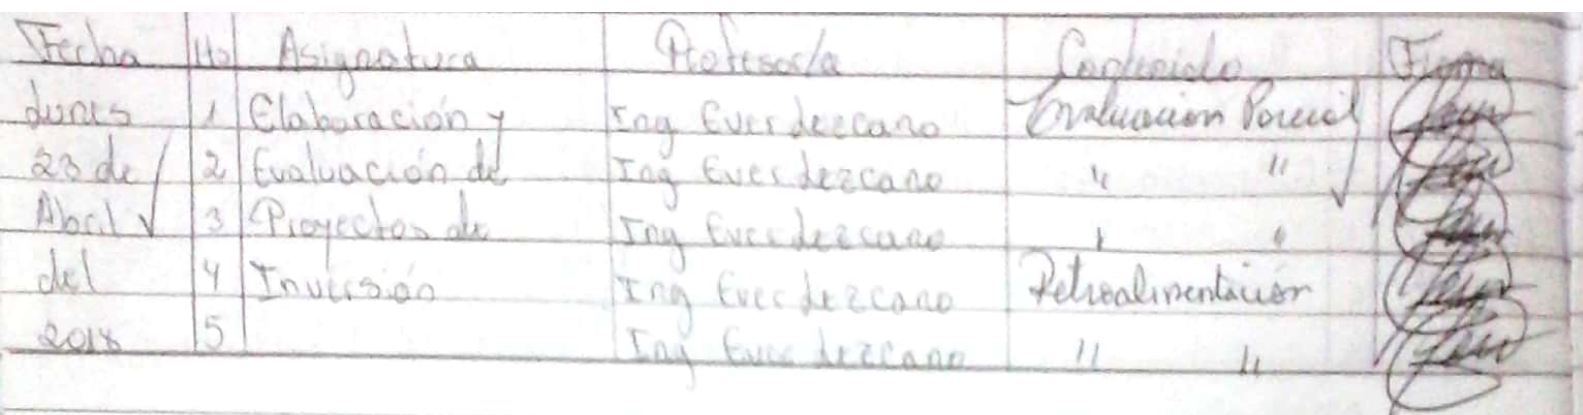 Fecha Ho Asignatura Profesor/a Contenido Firma
Lunes 1 Elaboración y Ing Ever Lezcano Evaluación Parcial
23 de 2 Evaluación de Ing Ever Lezcano " "
Abril 3 Proyectos de Ing Ever Lezcano " "
del 4 Inversión Ing Ever Lezcano Retroalimentación
2018 5 Ing Ever Lezcano " "